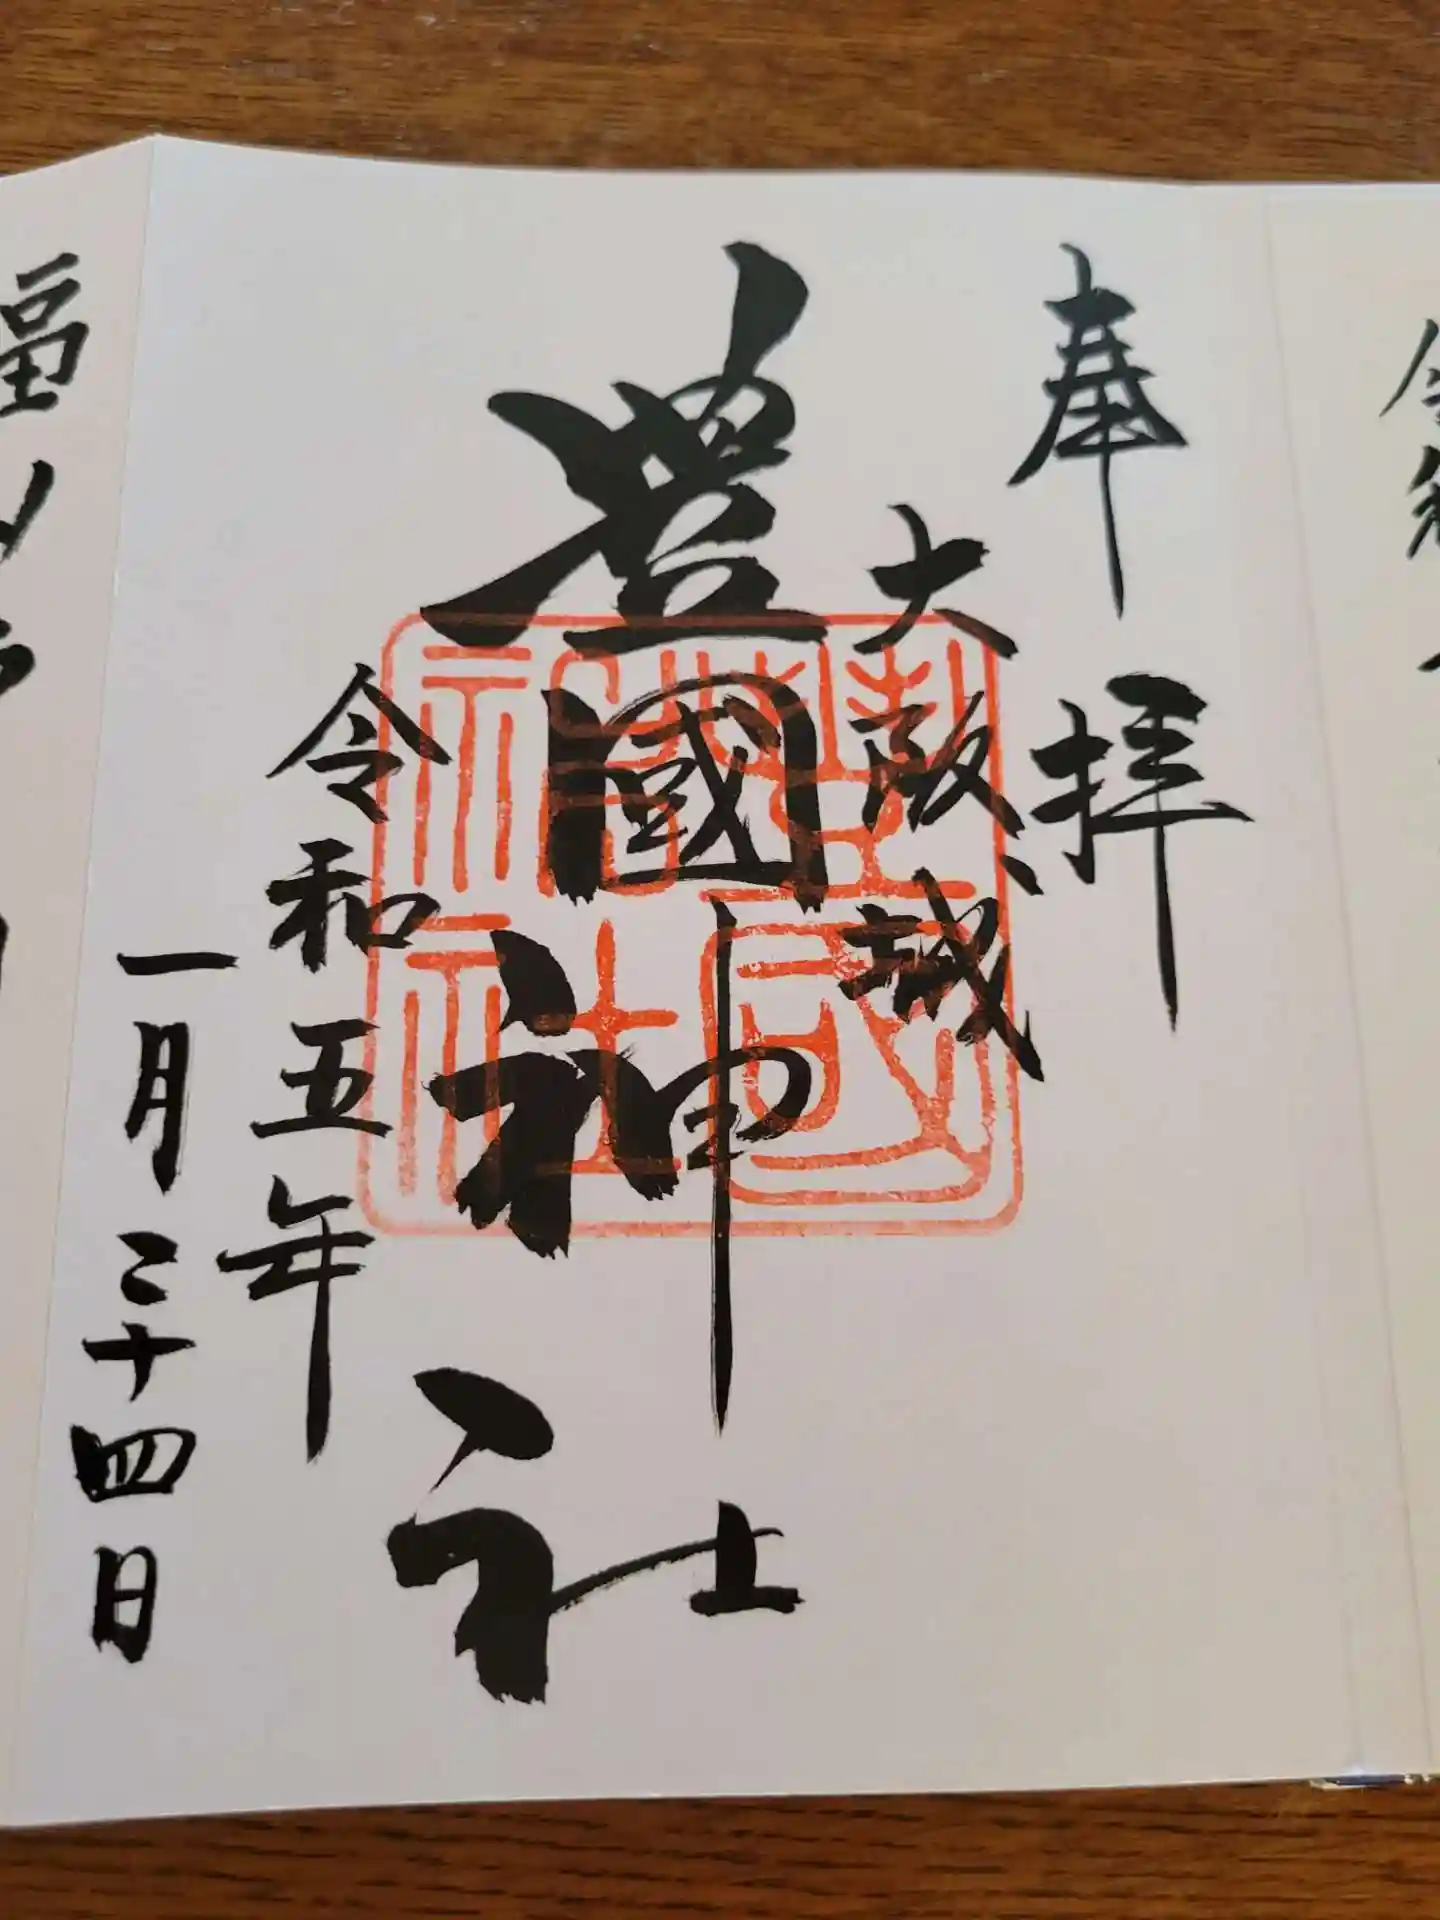 奉拝
大阪城
豊國神社
豊國神社
令和五年
一月二十四日